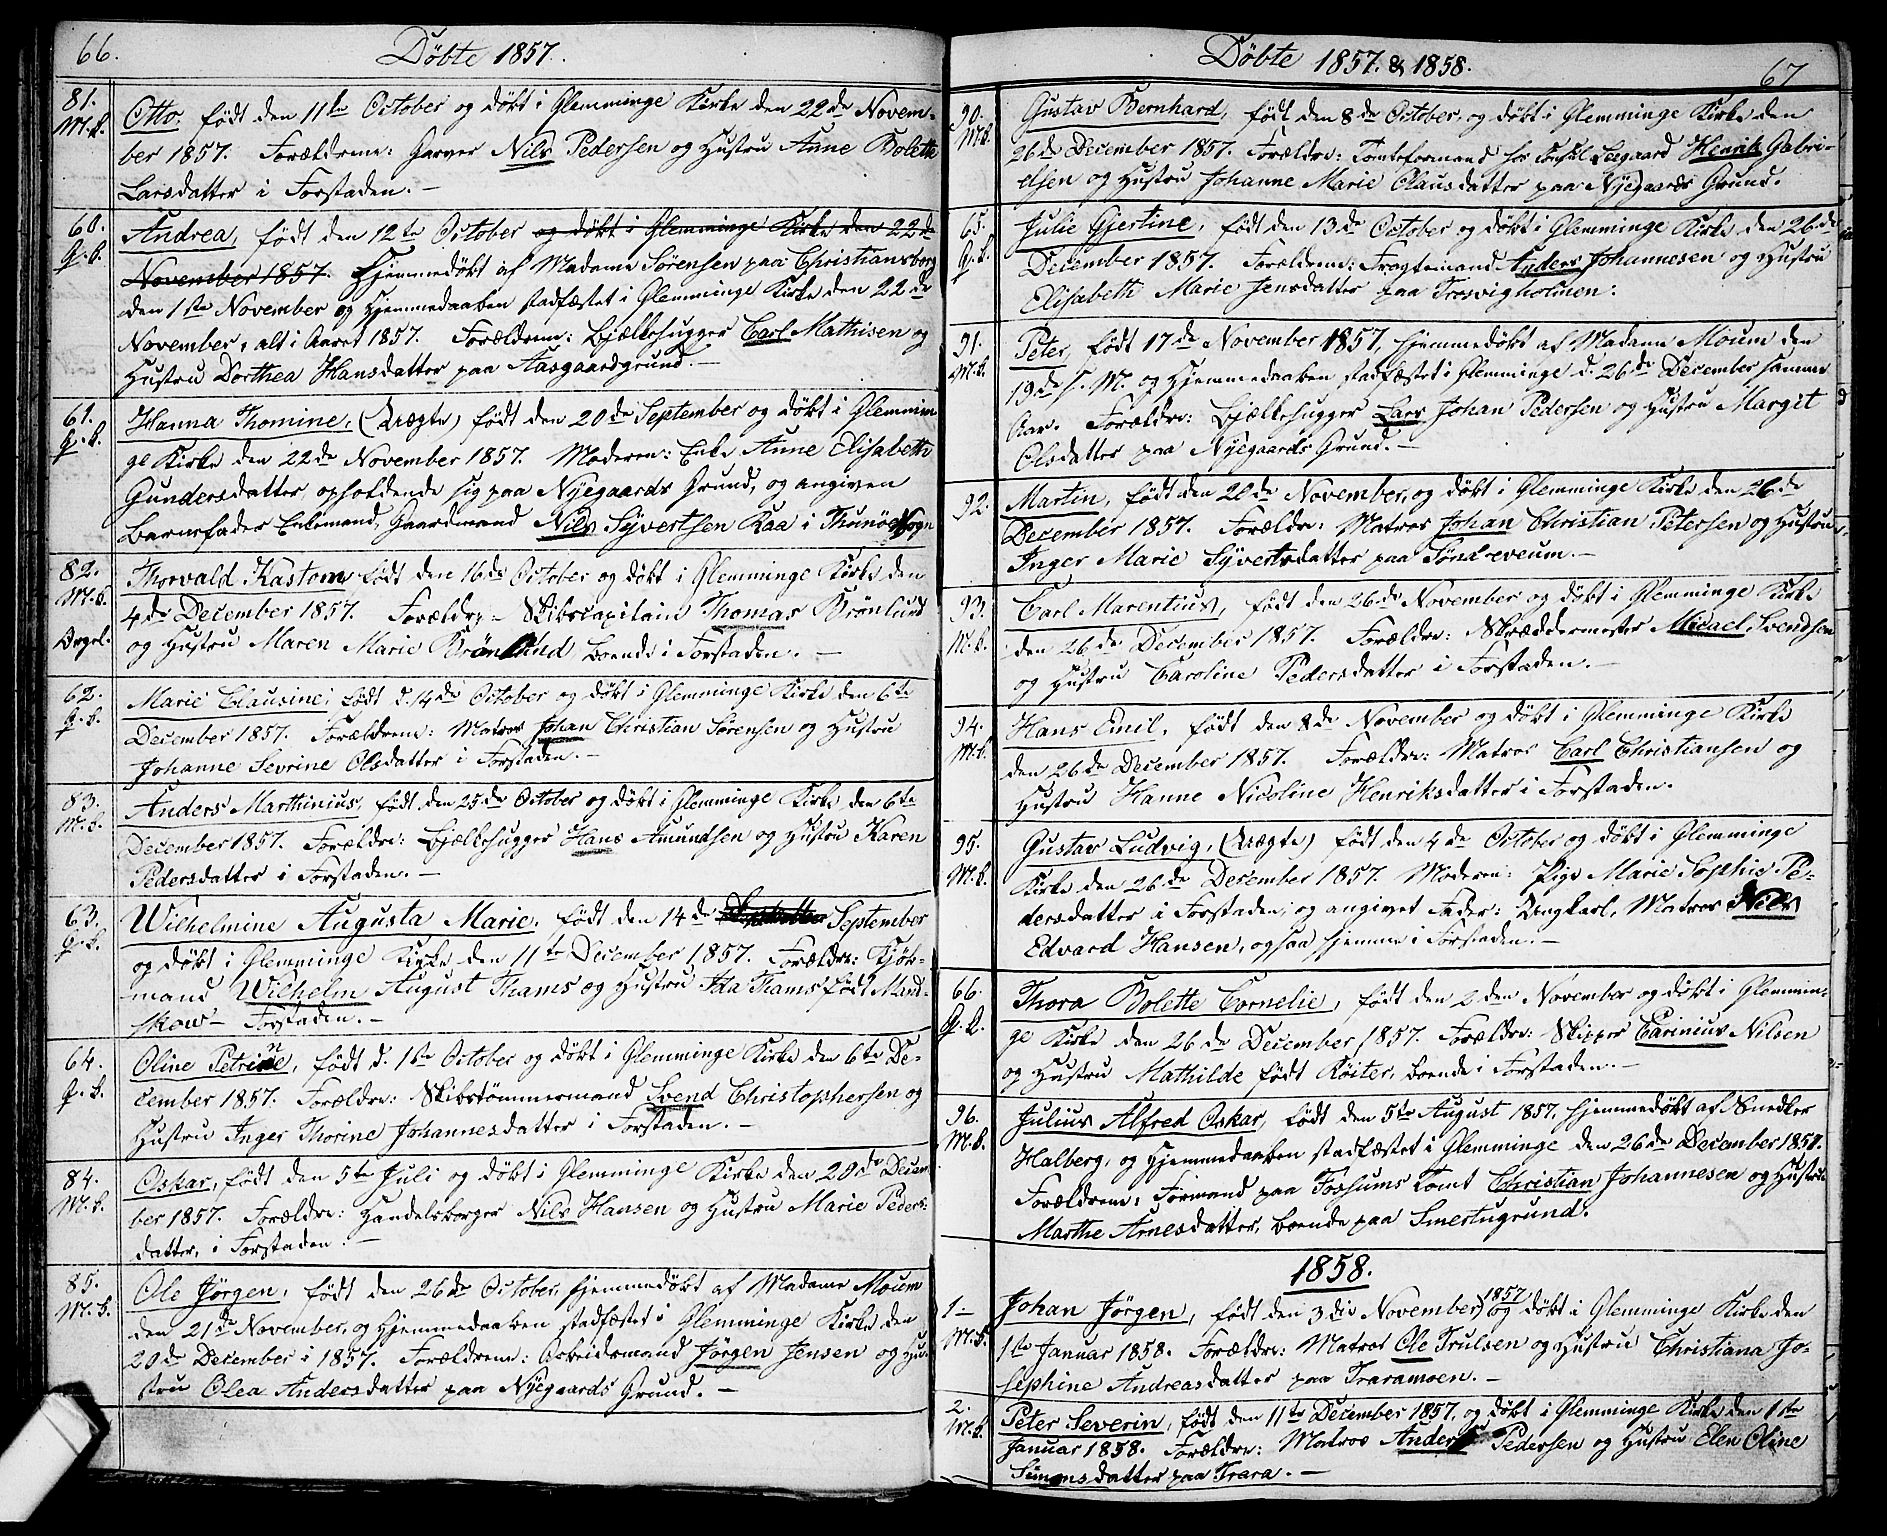 66.
Döbte 1857.
81.
M.k.
Otto, född den 11te October og döbt i Glemminge Kirke den 22de Novem-
ber 1857. Forældrene: Garver Nils Pedersen og Hustru Anne Bolette
Larsdatter i Forstaden. —
60.
Q.k.
Andrea, född den 12te October og döbt i Glemminge Kirke den 22de
November 1857. Hjemmedöbt af Madame Sörensen paa Christiansborg
den 1ste November og Hjemmedaaben stadfæstet i Glemminge Kirke den 22de
November, alt i Aaret 1857. Forældrene: Bjælkehugger Carl Mathisen og
Hustru Dorthea Hansdatter paa Aasgaardgrund. —
61.
Q.k.
Hanna Thomine, (Uægte) född den 20de September og döbt i Glemmin
ge Kirke den 22de November 1857. Moderen: Enke Anne Elisabeth
Gundersdatter opholdende sig paa Nyegaards Grund, og angiven
Barnefader Enkemand, Gaardmand Nils Syvertsen Raa i Thunöe Sogn
82.
M.k.
Dögel.
Thorvald Kastom född den 16de October og döbt i Glemminge Kirke den
4de December 1857. Forældre: Skibscapitain Thomas Brönlund
og Hustru Maren Marie Brönlund boende i Forstaden. —
62.
Q.k.
Marie Clausine, född d. 14de October og döbt i Glemminge Kirke den 6te
December 1857. Forældrene: Matros Johan Christian Sörensen og Hustru
Johanne Sevrine Olsdatter i Forstaden. —
83.
M.k.
Anders Marthinius, född den 25de October og döbt i Glemminge Kirke den 6te
December 1857. Forældre: Bjælkehugger Hans Amundsen og Hustru Karen
Pedersdatter i Forstaden. —
63.
Q.k.
Wilhelmine Augusta Marie, född den 14de September
og döbt i Glemminge Kirke den 11te December 1857. Forældre: Kjöb-
mand Wilhelm August Thams og Hustru Ida Thams född Mand-
skow — Forstaden. —
64.
Q.k.
Oline Petrine, född d. 1ste October og döbt i Glemminge Kirke den 6te De-
cember 1857. Forældre: Skibstömmermand Svend Christophersen og
Hustru Inger Thorine Johannesdatter i Forstaden. —
84.
M.k.
Oskar, född den 5te Juli og döbt i Glemminge Kirke den 20de Decem
ber 1857. Forældre: Handelsborger Nils Hansen og Hustru Marie Peders-
datter, i Forstaden. —
85.
M.k.
Ole Jörgen, född den 26de October, hjemmedöbt af Madame Moum
den 21de November, og Hjemmedaaben stadfæstet i Glemminge Kirke den
20de December i 1857. Forældrene: Arbeidsmand Jörgen Jensen og Hu-
stru Olea Andersdatter paa Nyegaards Grund. —
Döbte 1857. & 1858.
67
90.
M.k.
Gustav Bernhard, född den 8de October, og döbt i Glemminge Kirke den
26de December 1857. Forældre: Tomteformand hos Consul Seegaard Henrik Gabri-
elsen og Hustru Johanne Marie Clausdatter paa Nyegaards Grund.
65.
Q.k.
Julie Gjertine, född den 13de October og döbt i Glemminge Kirke den 26de
December 1857. Forældrene: Fragtemand Anders Johannesen og Hustru
Elisabeth Marie Jensdatter paa Trosvigholmen.
91.
M.k.
Peter, född 17de November 1857, hjemmedöbt af Madame Moum den
19de s. M. og Hjemmedaaben stadfæstet i Glemminge d. 26de December samme
Aar. Forældre: Bjælkehugger Lars Johan Pedersen og Hustru Margit
Olsdatter paa Nyegaards Grund. —
92.
Martin, född den 20de November, og döbt i Glemminge Kirke den 26de
December 1857. Forældre: Matros Johan Christian Petersen og Hustru
Inger Marie Syvertsdatter paa Söndreveum. —
93.
M.k.
Carl Marentius, född den 26de November og döbt i Glemminge Kirke
den 26de December 1857. Forældre: Skræddermester Micael Svendsen
og Hustru Caroline Pedersdatter i Forstaden. —
94.
M.k.
Hans Emil, född den 8de November og döbt i Glemminge Kirke
den 26de December 1857. Forældre: Matros Carl Christiansen og
Hustru Hanne Nicoline Henriksdatter i Forstaden.
95.
M.k.
Gustav Ludvig, (Uægte) född den 4de October og döbt i Glemminge
Kirke den 26de December 1857. Moderen: Pige Marie Sophie Pe-
dersdatter i Forstaden; og angivet Fader: Ungkarl, Matros Nils
Edvard Hansen, ogsaa hjemme i Forstaden. —
66.
Q.k.
Thora Bolette Cornelie, född den 2den November og döbt i Glemmin-
ge Kirke den 26de December 1857. Forældre: Skipper Carinius Nilsen
og Hustru Mathilde född Röiter, boende i Forstaden. —
96.
M.k.
Julius Alfred Oskar, född den 5te August 1857, hjemmedöbt af Snedker
Halberg, og Hjemmedaaben stadfæstet i Glemminge den 26de December 1857.
Forældrene: Formand paa Fossums Tomt Christian Johannesen og Hustru
Marthe Arnesdatter, boende paa Smertugrund.
1858.
1 —
M.k.
Johan Jörgen, född den 3die November 1857 og döbt i Glemminge Kirke den
1ste Januar 1858. Forældre: Matros Ole Trulsen og Hustru Christiana Jo-
sephine Andreasdatter paa Traramoen. —
2.
M.k.
Peter Severin, född den 11te December 1857, og döbt i Glemminge Kirke den 1ste
Januar 1858. Forældre: Matros Anders Pedersen og Hustru Elen Oline
Simonsdatter paa Trara. —